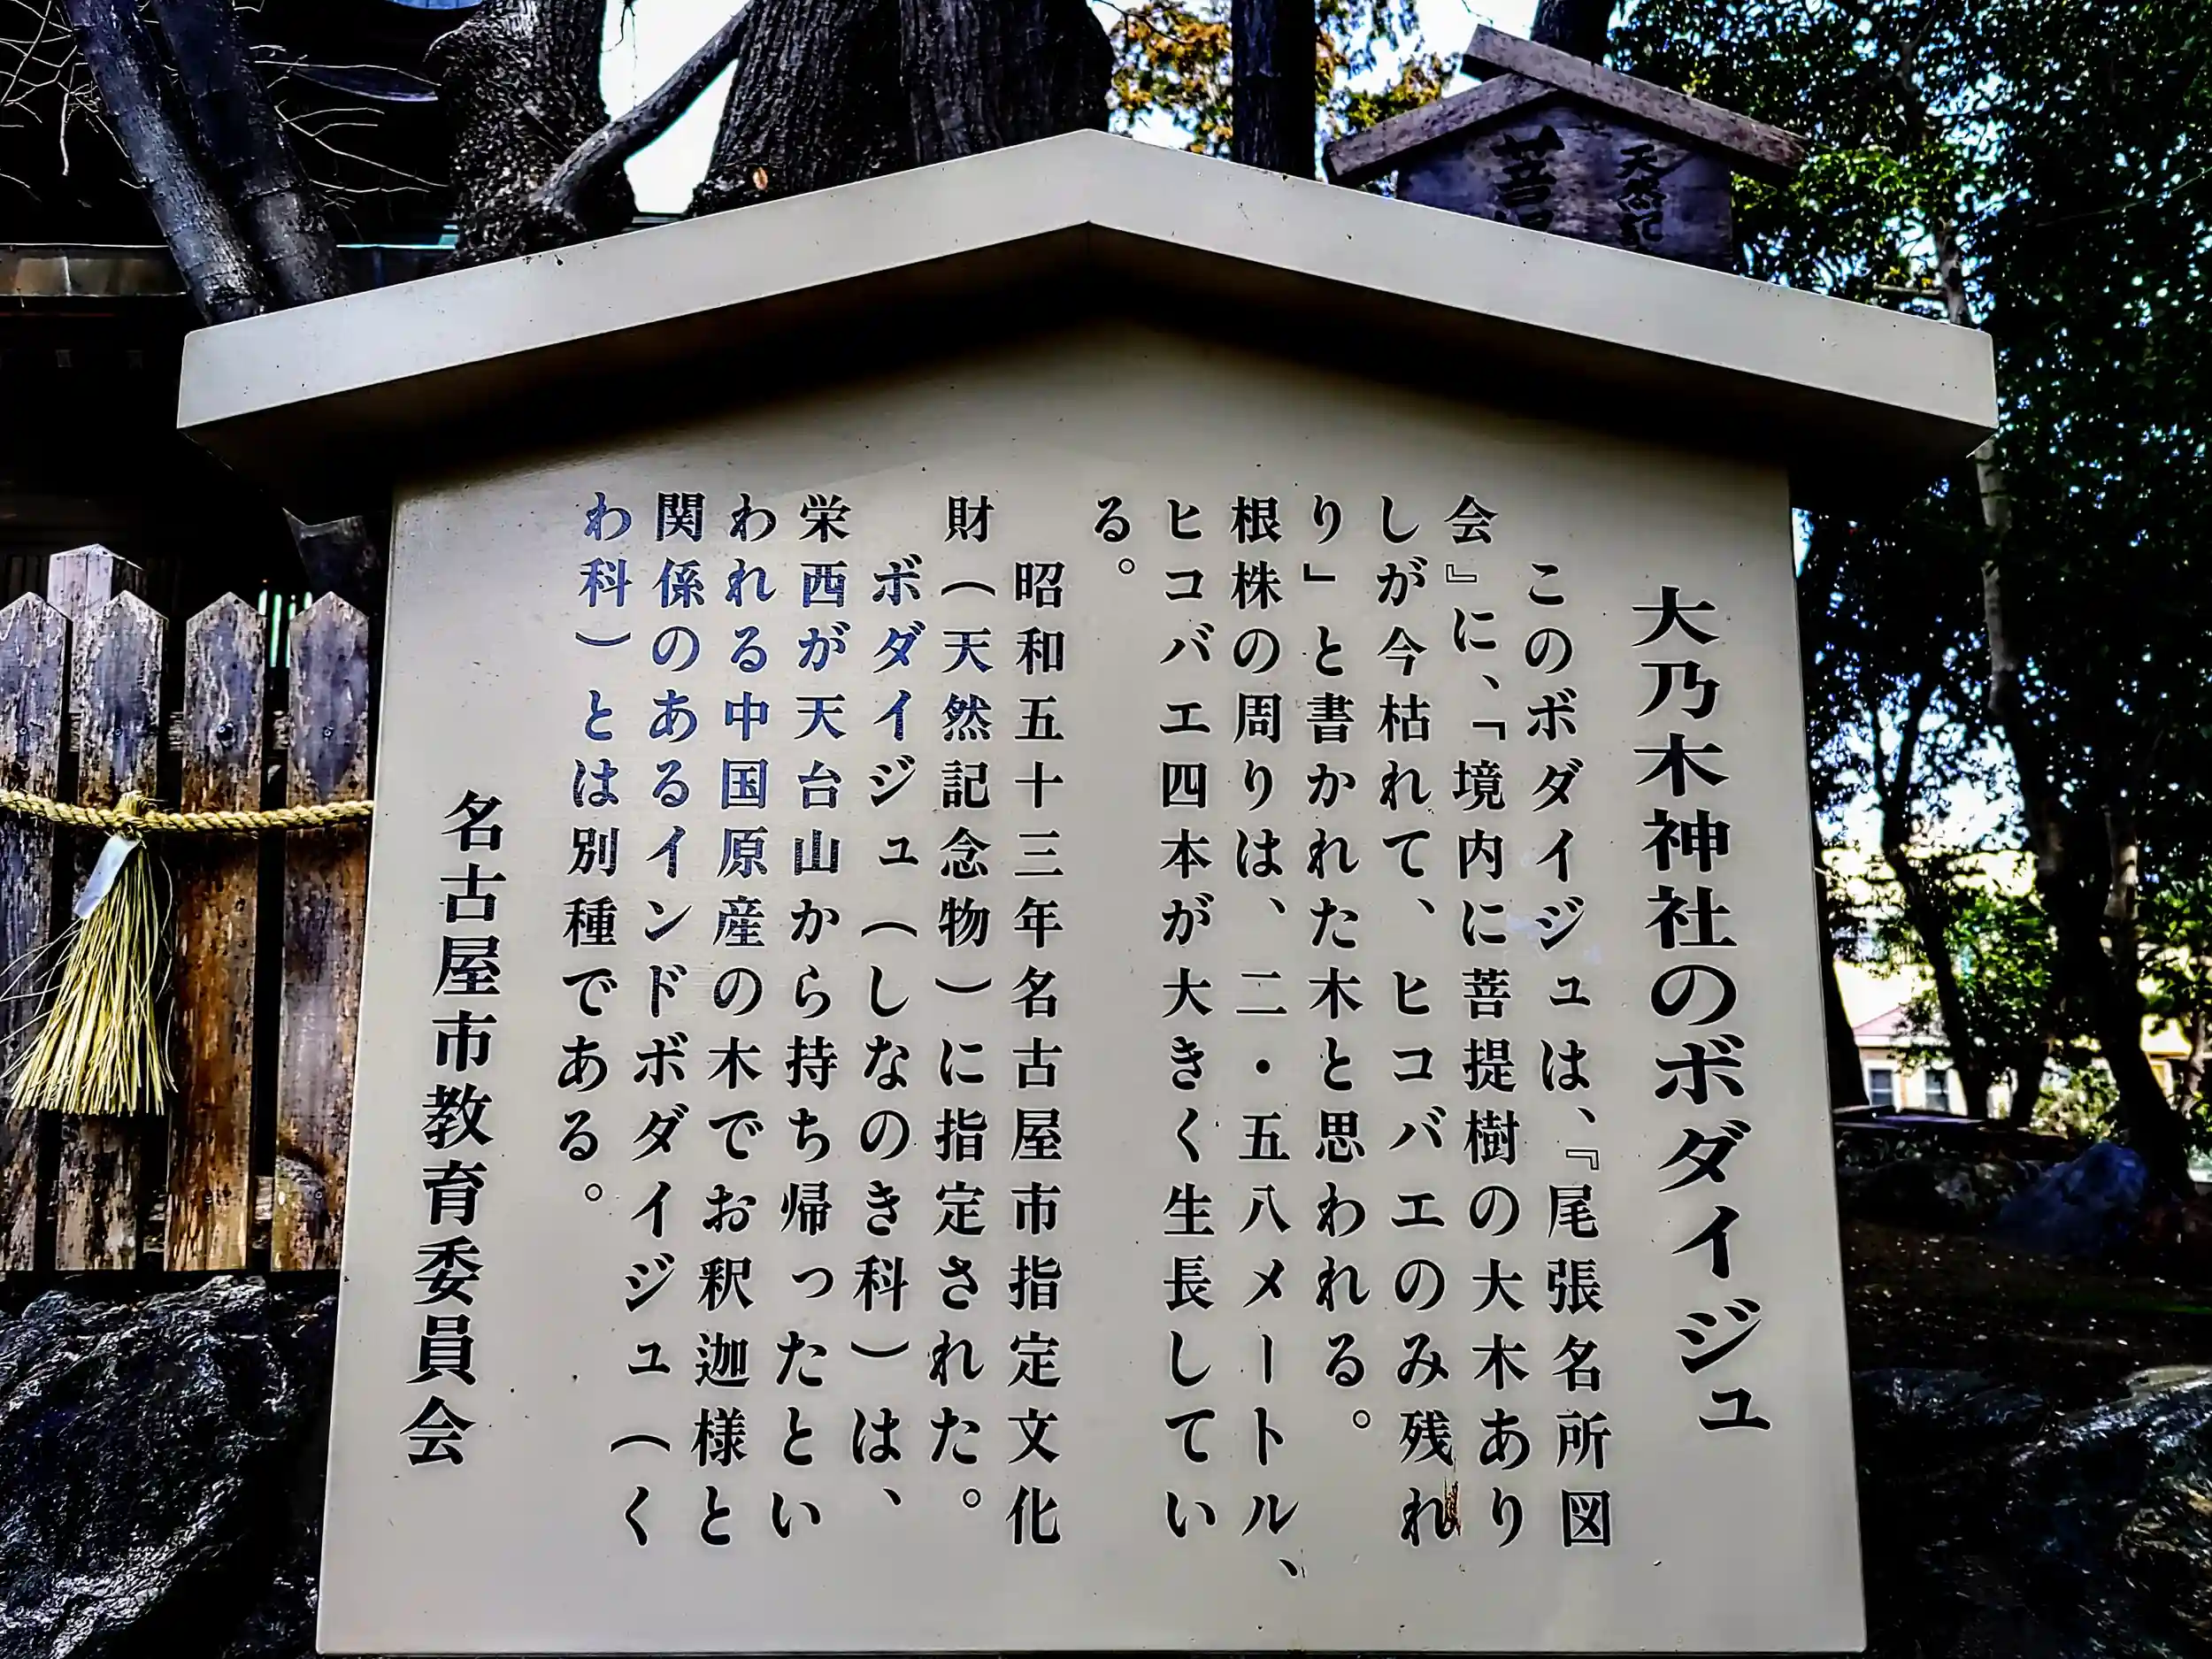 大乃木神社のボダイジュ
このボダイジュは、『尾張名所図
会』に、「境内に菩提樹の大木あり
しが今枯れて、ヒコバエのみ残れ
り」と書かれた木と思われる。
根株の周りは、二・五八メートル、
ヒコバエ四本が大きく生長してい
る。
昭和五十三年名古屋市指定文化
財（天然記念物）に指定された。
ボダイジュ（しなのき科）は、
栄西が天台山から持ち帰ったとい
われる中国原産の木でお釈迦様と
関係のあるインドボダイジュ（く
わ科）とは別種である。
名古屋市教育委員会
天然記
菩